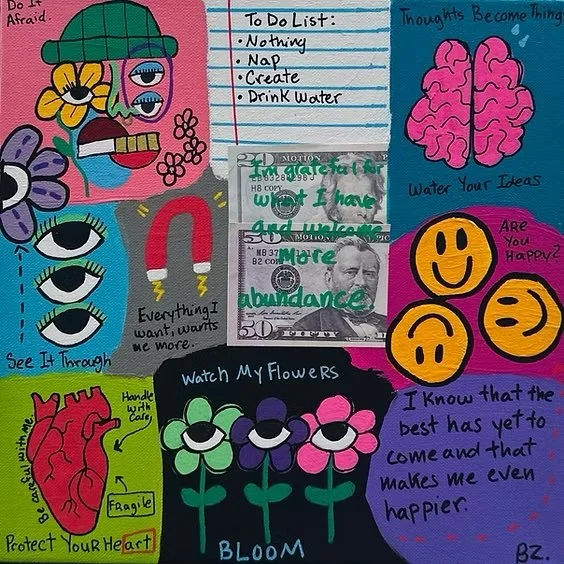 Do It
Afraid.
To Do List:
• Nothing
• Nap
• Create
• Drink Water
Thoughts Become Thing
Water Your Ideas
MOTION
H8 COPY
I'm grateful for
what I have
and welcome
More
abundance
50 MOTION PIC
50 FIFTY
Are
You
Happy?
See It Through
Everything I
want, wants
me more.
Be careful with me.
Handle
with
Care,
Fragile
Protect Your Heart
Watch My Flowers
BLOOM
I Know that the
best has yet to
come and that
makes me even
happier.
BZ.